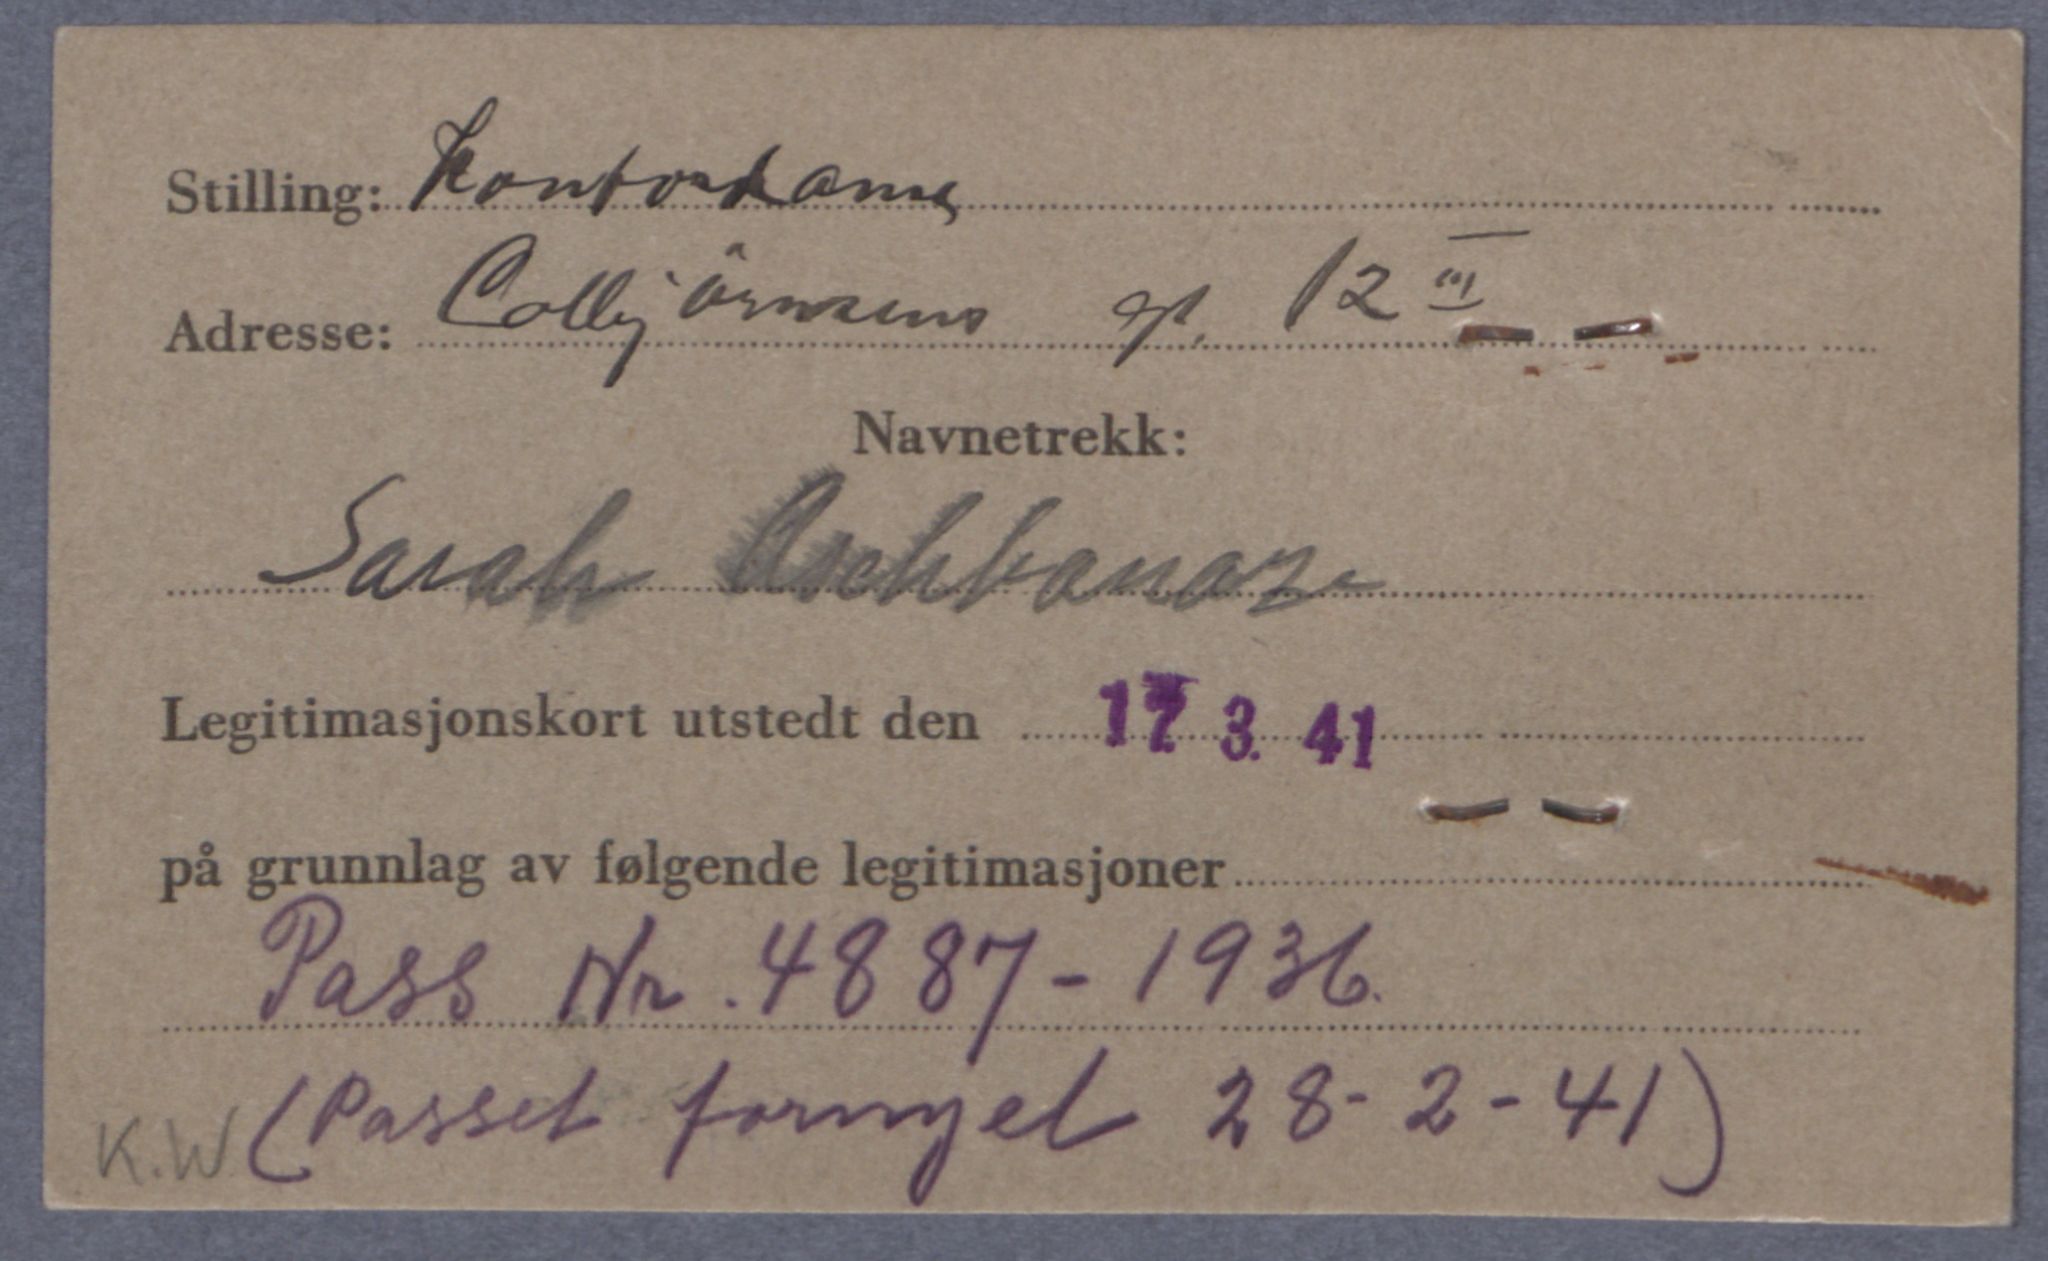 Stilling: Kontordame
Adresse: Colbjörnsens gt. 12 III
Navnetrekk:
Sarah Aschkanaze
Legitimasjonskort utstedt den 17 3. 41
på grunnlag av følgende legitimasjoner
Pass Nr. 4887-1936.
(Passet fornyet 28-2-41)
K.W